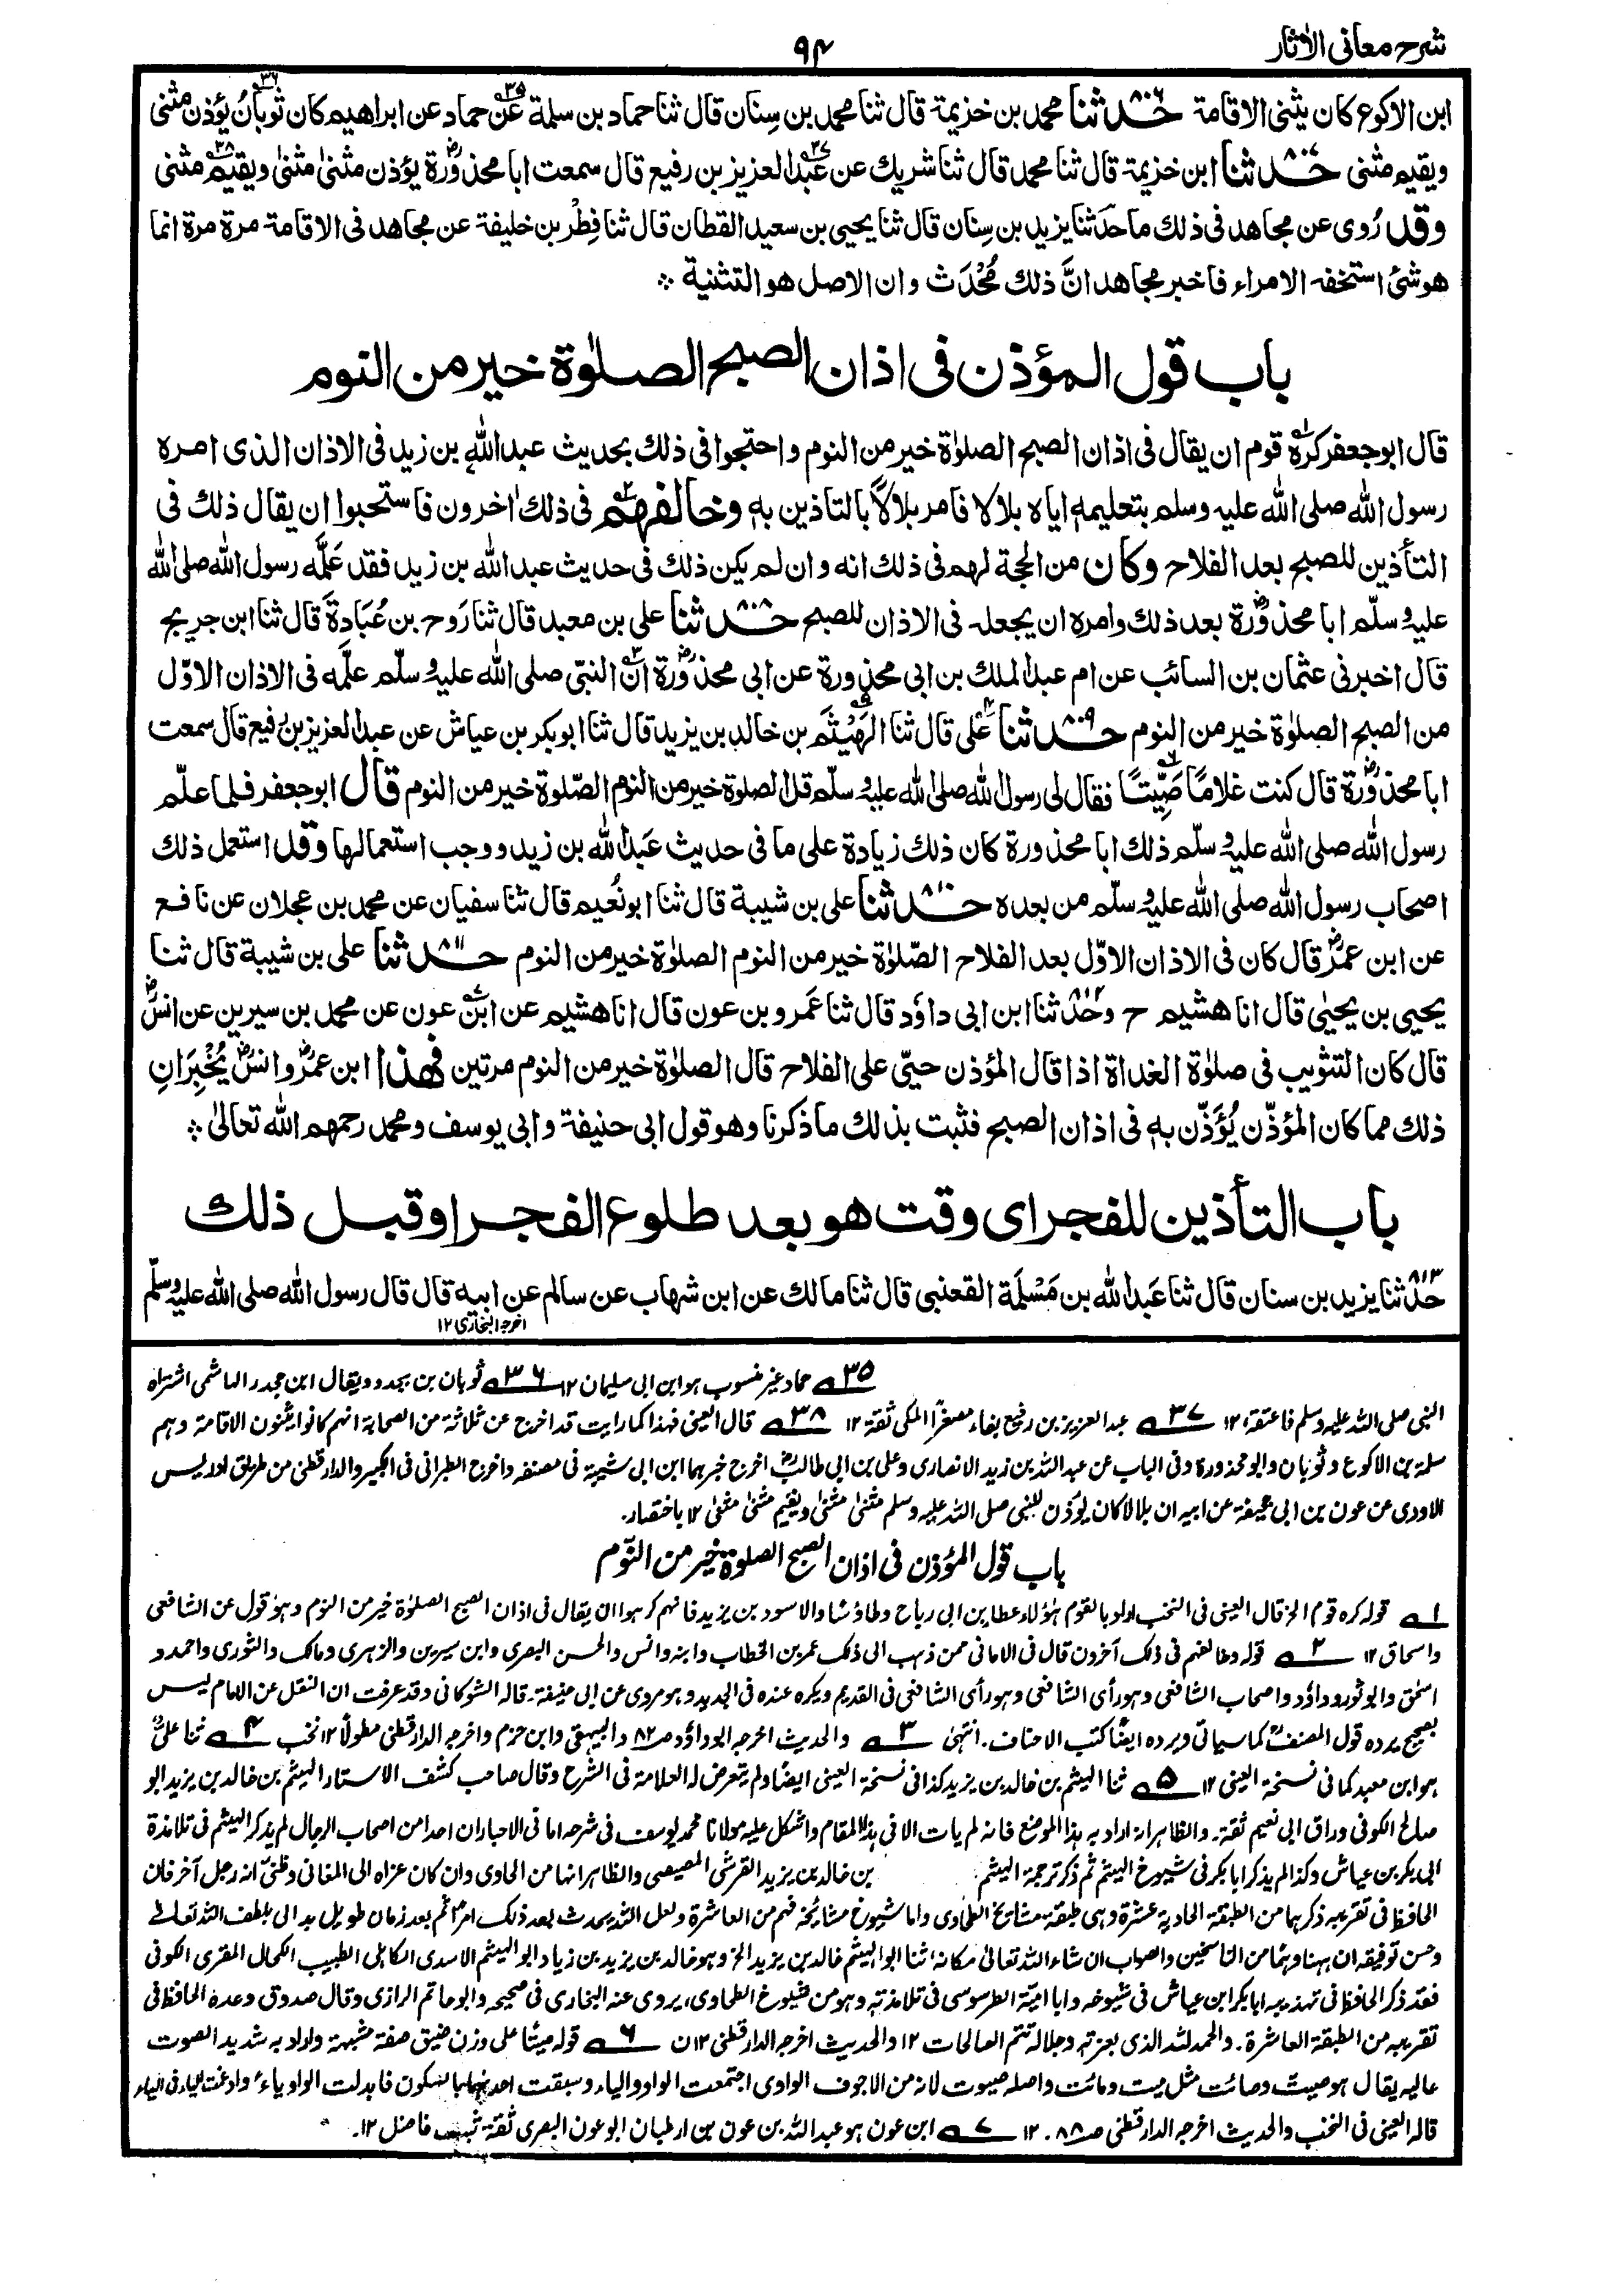 شرح معانی الاٰثار
۹۴
ابن الاکوع کان یثنی الاقامۃ حدثنا ۸۰۶ محمد بن خزیمۃ قال ثنا محمد بن سِنان قال ثنا حماد بن سلمۃ عن ۳۵ حماد عن ابراھیم کان ثوبان ۳۶ یؤذن مثنی
ویقیم مثنی حدثنا ۸۰۷ ابن خزیمۃ قال ثنا محمد قال ثنا شریك عن عبد ۳۷ العزیز بن رفیع قال سمعت ابا محذورۃ یؤذن مثنیٰ مثنیٰ ویقیم ۳۸ مثنی
وقد رُوی عن مجاھد فی ذلك ما حدثنا یزید بن سِنان قال ثنا یحیی بن سعید القطان قال ثنا فِطْر بن خلیفۃ عن مجاھد فی الاقامۃ مرۃ مرۃ انما
ھو شئ استخفہ الامراء فاخبر مجاھد انَّ ذلك مُحْدَث وان الاصل ھو التثنیۃ
باب قول المؤذن فی اذان الصبح الصلوٰۃ خیر من النوم
قال ابو جعفر کرہ ۱ قوم ان یقال فی اذان الصبح الصلوٰۃ خیر من النوم واحتجوا فی ذلك بحدیث عبد اللہ بن زید فی الاذان الذی امرہ
رسول اللہ صلی اللہ علیہ وسلم بتعلیمہٖ ایاہ بلالا فامر بلالًا بالتاذین بہٖ وخالفھم ۲ فی ذلك اٰخرون فاستحبوا ان یقال ذلك فی
التأذین للصبح بعد الفلاح وکان من الحجۃ لھم فی ذلك انہ وان لم یکن ذلك فی حدیث عبد اللہ بن زید فقد عَلَّمَہ رسول اللہ صلی اللہ
علیہ وسلّم ابا محذورۃ بعد ذلك وامرہ ان یجعلہ فی الاذان للصبح حدثنا ۸۰۸ علی بن معبد قال ثنا رَوح بن عُبَادۃَ قال ثنا ابن جریج
قال اخبرنی عثمان بن السائب عن ام عبد الملك بن ابی محذورۃ عن ابی محذورۃ ان ۳ النبیّ صلی اللہ علیہ وسلّم علّمہ فی الاذان الاوّل
من الصبح الصلوٰۃ خیر من النوم حدثنا ۸۰۹ علی ۴ قال ثنا الھَیْثَم ۵ بن خالد بن یزید قال ثنا ابو بکر بن عیاش عن عبد العزیز بن رفیع قال سمعت
ابا محذورۃ قال کنت غلامًا صَیِّتًا ۶ فقال لی رسول اللہ صلی اللہ علیہ وسلّم قل الصلوۃ خیر من النوم الصّلوۃ خیر من النوم قال ابو جعفر فلما علّم
رسول اللہ صلی اللہ علیہ وسلّم ذلك ابا محذورۃ کان ذلك زیادۃ علی ما فی حدیث عبد اللہ بن زید ووجب استعمالھا وقد استعمل ذلك
اصحاب رسول اللہ صلی اللہ علیہ وسلّم من بعدہ حدثنا ۸۱۰ علی بن شیبۃ قال ثنا ابو نُعیم قال ثنا سفیان عن محمد بن عجلان عن نافع
عن ابن عمر قال کان فی الاذان الاوّل بعد الفلاح الصّلوٰۃ خیر من النوم الصلوٰۃ خیر من النوم حدثنا ۸۱۱ علی بن شیبۃ قال ثنا
یحیی بن یحییٰ قال انا ھشیم ح وحدثنا ۸۱۲ ابن ابی داوٗد قال ثنا عَمرو بن عون قال انا ھشیم عن ابن ۷ عون عن محمد بن سیرین عن انس
قال کان التثویب فی صلوٰۃ الغداۃ اذا قال المؤذن حیّ علی الفلاح قال الصلوٰۃ خیر من النوم مرتین فھذا ابن عمر وانس یُخْبِرَانِ
ذلك مما کان المؤذّن یُؤَذّن بہٖ فی اذان الصبح فثبت بذلك ما ذکرنا وھو قول ابی حنیفۃ وابی یوسف ومحمد رحمھم اللہ تعالیٰ
باب التأذین للفجر ای وقت ھو بعد طلوع الفجر او قبل ذلك
حدثنا ۸۱۳ یزید بن سنان قال ثنا عبد اللہ بن مَسْلَمَۃ القعنبی قال ثنا مالك عن ابن شھاب عن سالم عن ابیہ قال قال رسول اللہ صلی اللہ علیہ وسلّم
اخرجہ البخاری ۱۲
۳۵ حماد غیر منسوب ہو ابن ابی سلیمان ۱۲ ۳۶ ثوبان بن بجدد ویقال ابن جحدر الہاشمی اشتراہ
النبی صلی اللہ علیہ وسلم فاعتقہ ۱۲ ۳۷ عبد العزیز بن رفیع بفاء مصغرًا المکی ثقۃ ۱۲ ۳۸ قال العینی فہذا کما رایت قد اخرج عن ثلاثۃ من الصحابۃ انہم کانوا یثنون الاقامۃ وہم
سلمۃ بن الاکوع وثوبان وابو محذورۃ وفی الباب عن عبد اللہ بن زید الانصاری وعلی بن ابی طالب اخرج خبرہما ابن ابی شیبۃ فی مصنفہ واخرج الطبرانی فی الکبیر والدارقطنی من طریق ادریس
الاودی عن عون بن ابی جحیفۃ عن ابیہ ان بلالا کان یؤذن للنبی صلی اللہ علیہ وسلم مثنیٰ مثنیٰ ویقیم مثنیٰ مثنیٰ ۱۲ باختصار۔
باب قول المؤذن فی اذان الصبح الصلوۃ خیر من النّوم
۱ قولہ کرہ قوم الخ قال العینی فی النخب اراد بالقوم ہٰؤلاء عطاء بن ابی رباح وطاؤسا والاسود بن یزید فانہم کرہوا ان یقال فی اذان الصبح الصلوٰۃ خیر من النوم وہو قول عن الشافعی
واسحاق ۱۲ ۲ قولہ وخالفہم فی ذلک آخرون قال فی الامانی ممن ذہب الی ذلک عمر بن الخطاب وابنہ وانس والحسن البصری وابن سیرین والزہری ومالک والثوری واحمد و
اسحٰق وابو ثور وداؤد واصحاب الشافعی وہو رأی الشافعی فی القدیم ویکرہ عندہ فی الجدید وہو مروی عن ابی حنیفۃ۔ قالہ الشوکانی وقد عرفت ان النقل عن الامام لیس
بصحیح یردہ قول المصنف کما سیاتی ویردہ ایضًا کتب الاحناف۔ انتہیٰ ۳ والحدیث اخرجہ ابو داؤد ص۸۲ والبیہقی وابن حزم واخرجہ الدارقطنی مطولًا ۱۲ نخب ۴ ثنا علی
ہو ابن معبد کما فی نسخۃ العینی ۱۲ ۵ ثنا الہیثم بن خالد بن یزید کذا فی نسخۃ العینی ایضًا ولم یتعرض لہ العلامۃ فی الشرح وقال صاحب کشف الاستار الہیثم بن خالد بن یزید ابو
صالح الکوفی وراق ابی نعیم ثقۃ۔ والظاہر انہ اراد بہ ہذا الموضع فانہ لم یات الا فی ہذا المقام واشکل علیہ مولانا محمد یوسف فی شرحہ امانی الاحبار ان احدا من اصحاب الرجال لم یذکر الہیثم فی تلامذۃ
ابی بکر بن عیاش وکذا لم یذکر ابا بکر فی شیوخ الہیثم ثم ذکر ترجمۃ الہیثم بن خالد بن یزید القرشی المصیصی والظاہر انہا من الحاوی وان کان عزاہ الی المغانی وظنی انہ رجل آخر فان
الحافظ فی تقریبہ ذکرہما من الطبقۃ الحادیۃ عشرۃ وہی طبقۃ مشایخ الطحاوی واما شیوخ مشایخہ فہم من العاشرۃ ولعل اللہ یحدث بعد ذلک امرًا ثم بعد زمان طویل بدا لی بلطف اللہ تعالیٰ
وحسن توفیقہ ان ہہنا وہما من الناسخین والصواب ان شاء اللہ تعالیٰ مکانہ ثنا ابو الہیثم خالد بن یزید الخ وہو خالد بن یزید بن زیاد ابو الہیثم الاسدی الکاہلی الطبیب الکحال المقری الکوفی
فقد ذکر الحافظ فی تہذیبہ ابا بکر ابن عیاش فی شیوخہ وابا امیۃ الطرسوسی فی تلامذتہ وہو من شیوخ الطحاوی، یروی عنہ البخاری فی صحیحہ وابو حاتم الرازی وقال صدوق وعدہ الحافظ فی
تقریبہ من الطبقۃ العاشرۃ۔ والحمد للہ الذی بعزتہ وجلالہ تتم الصالحات ۱۲ والحدیث اخرجہ الدارقطنی ۱۲ ن ۶ قولہ صیتًا علی وزن ضیق صفۃ مشبہۃ واراد بہ شدید الصوت
عالیہ یقال ہو صیت وصائت مثل میت ومائت واصلہ صیوت لانہ من الاجوف الواوی اجتمعت الواو والیاء وسبقت احدٰہما بالسکون فابدلت الواو یاء وادغمت الیاء فی الیاء
قالہ العینی فی النخب والحدیث اخرجہ الدارقطنی ص۸۸۔ ۱۲ ۷ ابن عون ہو عبد اللہ بن عون بن ارطبان ابو عون البصری ثقۃ ثبت فاضل ۱۲۔